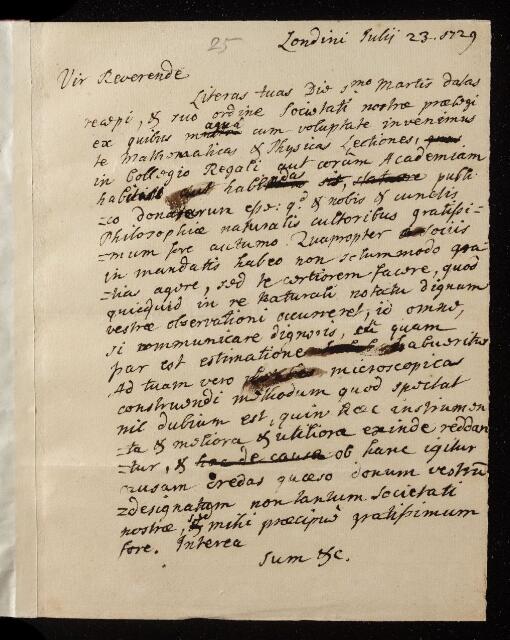 25
Londini Julij 23. 1729
Vir Reverende
Literas tuas Die 5mo Martis datas
recepi, & suo ordine Societati nostræ prælegi
ex quibus magna cum voluptate invenimus
te Mathematicas & Physicas Lectiones,
in Collegio Regali aut coram Academiam
publi-
-co donaturum esse: qd & nobis & cunctis
Philosophiæ naturalis cultoribus gratissi-
-mum fore autumo. Quapropter a sociis
in mandatis habeo non solummodo gra-
-tias agere, sed te certiorem facere, quod
quicquid in re naturali notatu dignum
vestræ observationi occurreret, id omne,
si communicare digneris, quam
par est estimatione habueritis
Ad tuam vero microscopica
construendi methodum quod spectat
nil dubium est, quin hæc instrumen
-ta & meliora & utiliora exinde reddan
-tur, & hac de causa ob hanc igitur
causam credas quæso donum vestrũ
designatam non tantum Societati
nostræ, sed mihi præcipuè gratissimum
fore. Interea
Sum &c.